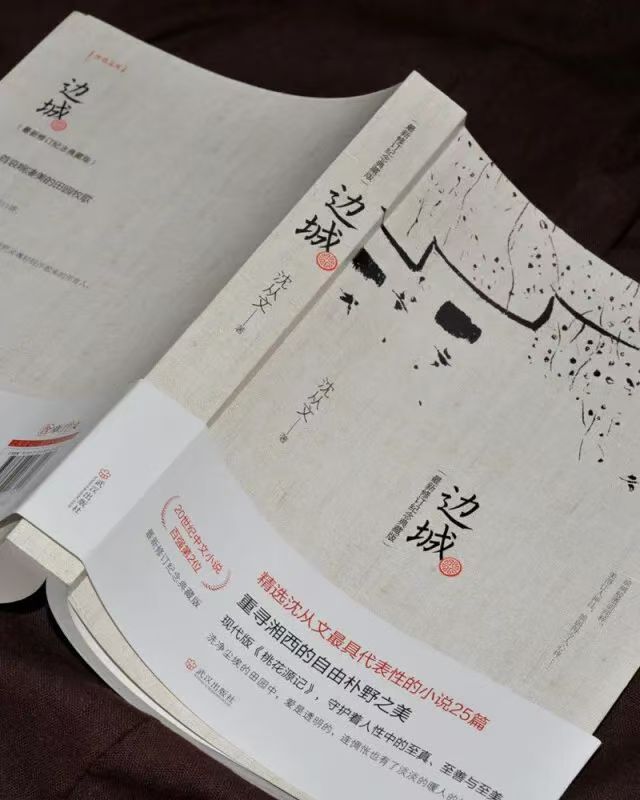 边城
（最新修订纪念典藏版）
（最新修订纪念典藏版）
边城
沈从文 著
武汉出版社
沈从文 著
边城
（最新修订纪念典藏版）
20世纪中文小说
百强第2位
最新修订纪念典藏版
精选沈从文最具代表性的小说25篇
重寻湘西的自由朴野之美
现代版《桃花源记》，守护着人性中的至真、至善与至美
洗净尘埃的田园中，爱是透明的，连惆怅也有了淡淡的暖人的
武汉出版社